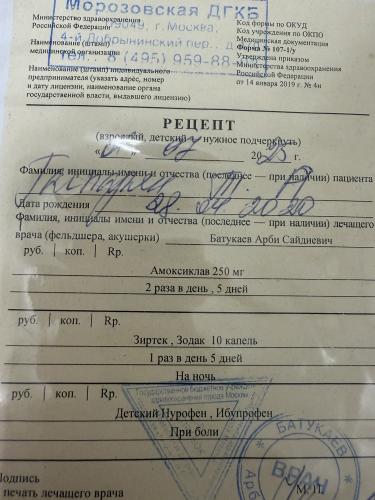 Морозовская ДГКБ
Министерство здравоохранения
Российской Федерации
119049, г. Москва,
4-й Добрынинский пер., д.
Наименование (штамп)
медицинской организации
тел.: 8 (495) 959-88-
Наименование (штамп) индивидуального
предпринимателя (указать адрес, номер
и дату лицензии, наименование органа
государственной власти, выдавшего лицензию)
Код формы по ОКУД
Код учреждения по ОКПО
Медицинская документация
Форма № 107-1/у
Утверждена приказом
Министерства здравоохранения
Российской Федерации
от 14 января 2019 г. № 4н
РЕЦЕПТ
(взрослый, детский - нужное подчеркнуть)
07 2023 г.
Фамилия, инициалы имени и отчества (последнее — при наличии) пациента
Дата рождения 2020
Фамилия, инициалы имени и отчества (последнее — при наличии) лечащего
врача (фельдшера, акушерки) Батукаев Арби Сайдиевич
руб. | коп. | Rp.
Амоксиклав 250 мг
2 раза в день , 5 дней
руб. | коп. | Rp.
Зиртек , Зодак 10 капель
1 раз в день 5 дней
На ночь
руб. | коп. | Rp.
Государственное бюджетное учреждение
здравоохранения города Москвы
Детский Нурофен , Ибупрофен
При боли
БАТУКАЕВ
ВРАЧ
Арб
Подпись
и печать лечащего врача
М.П.